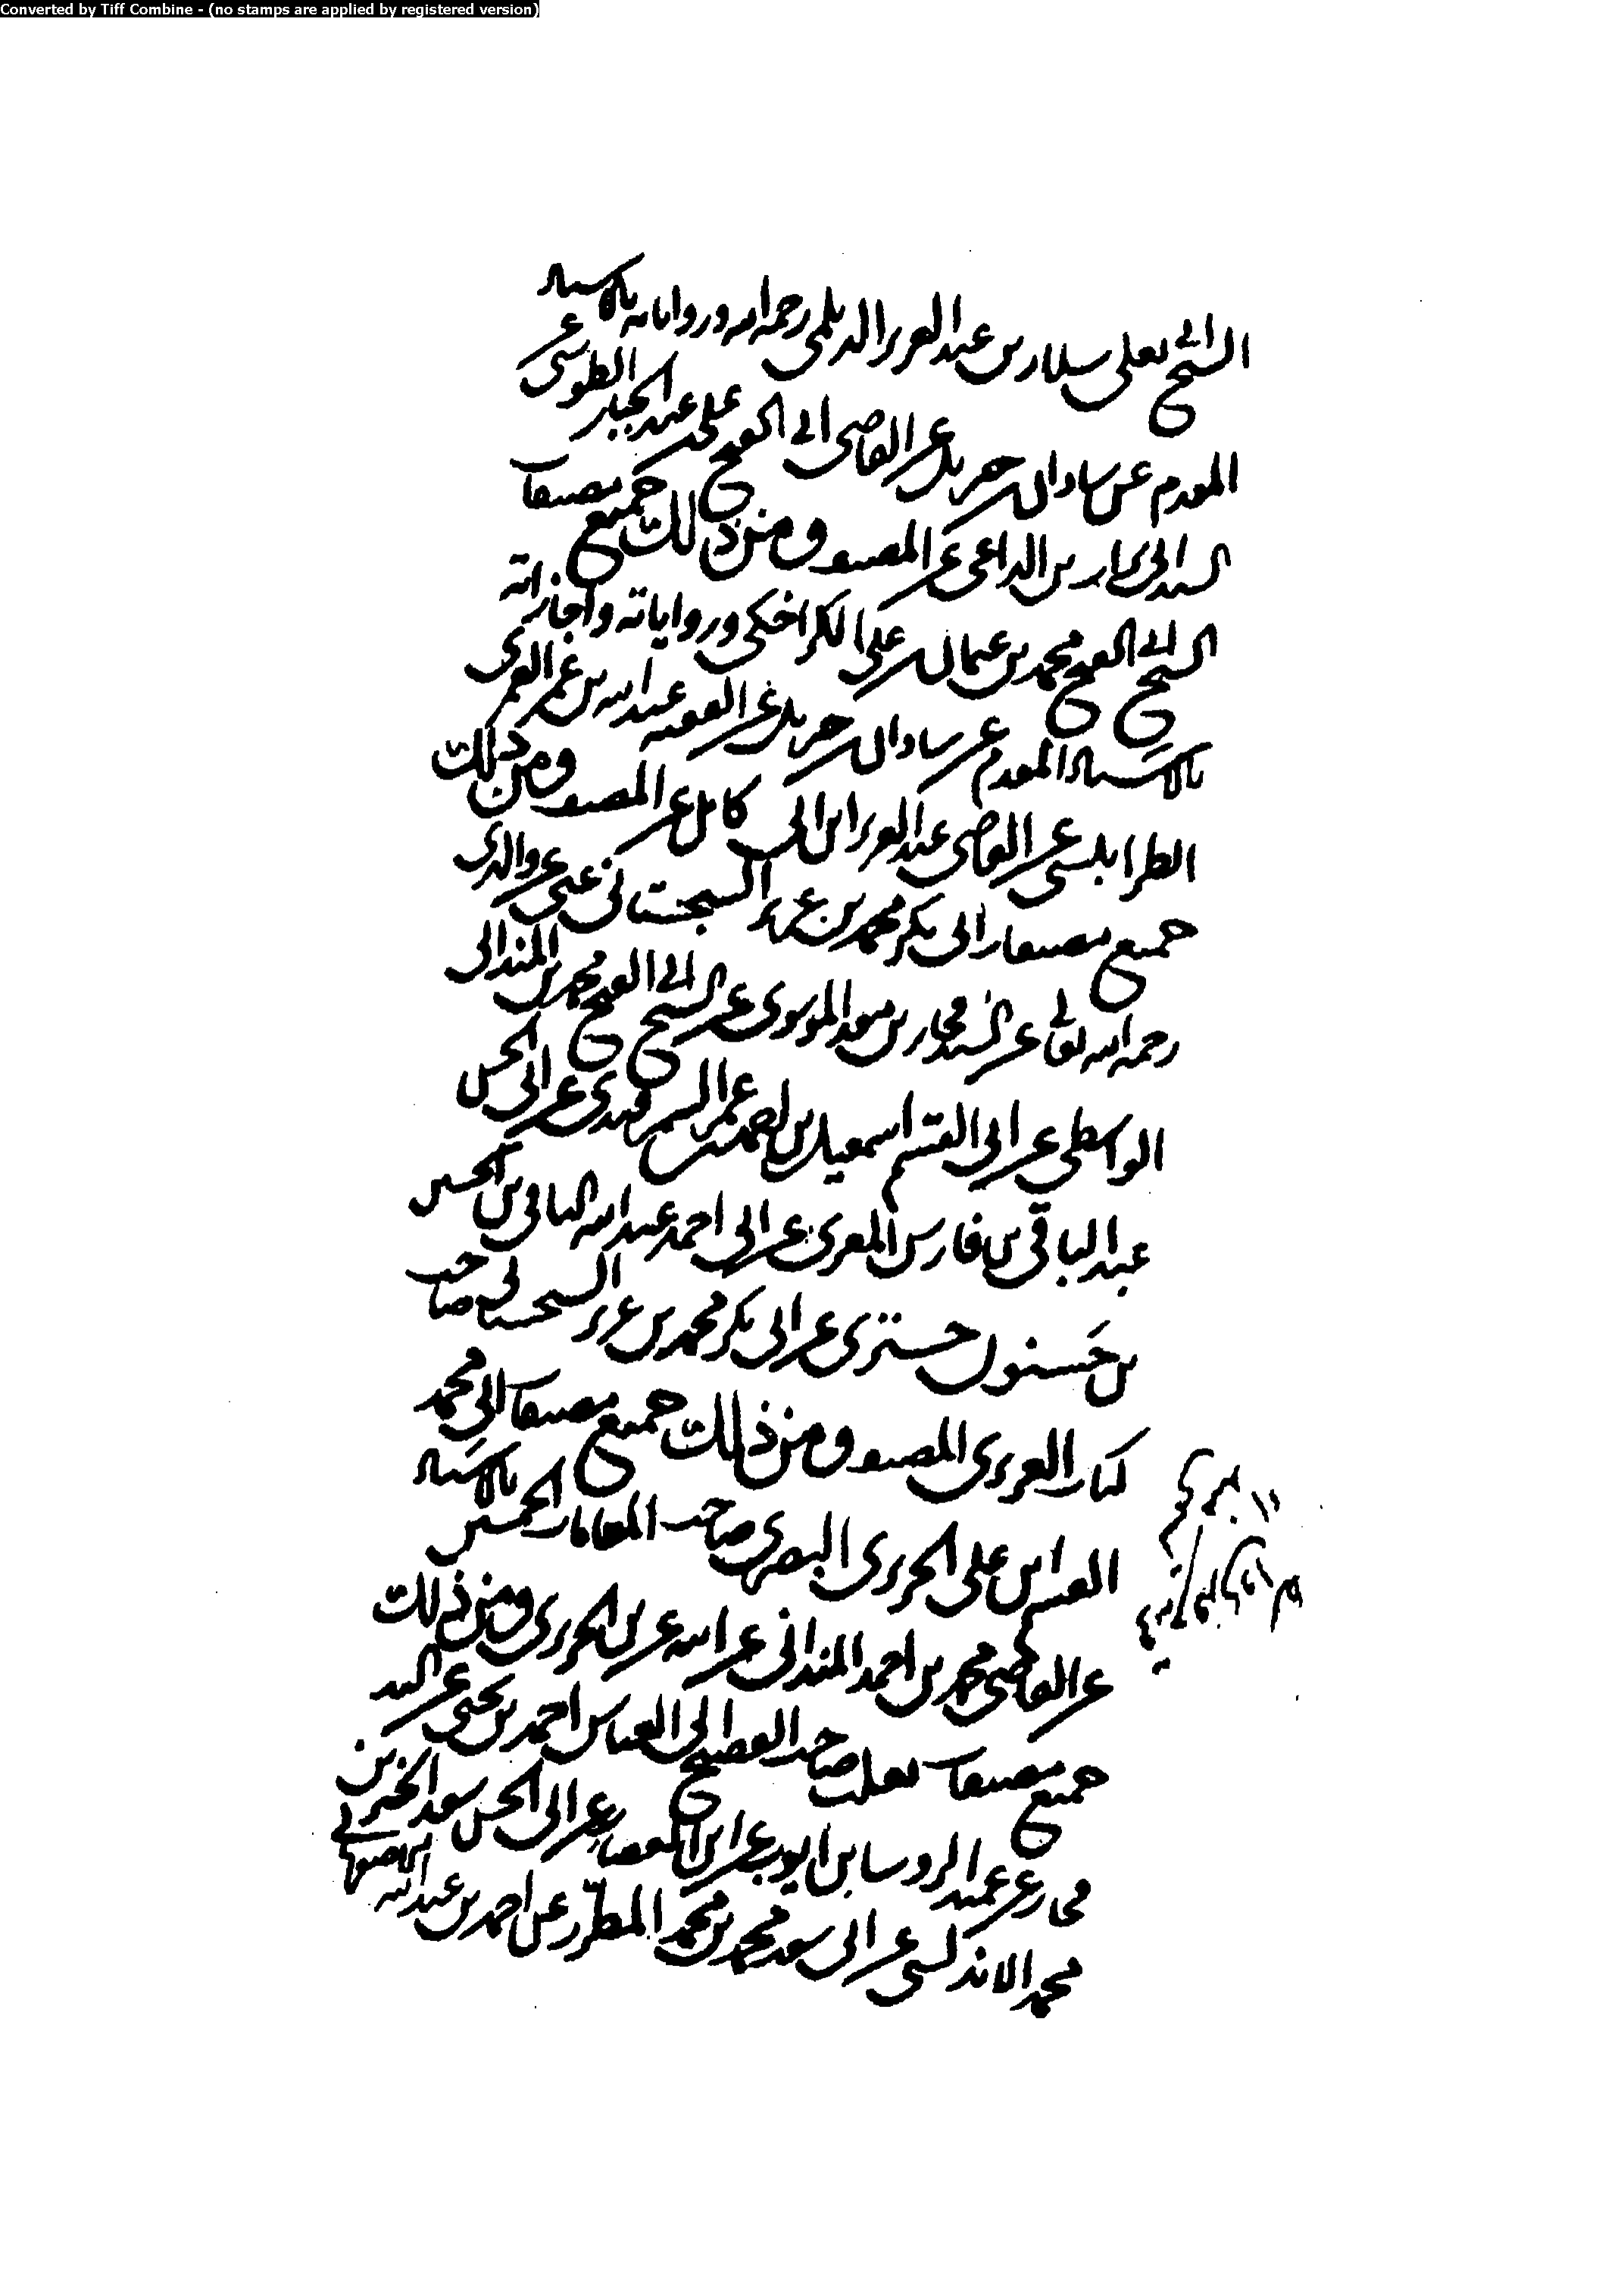 Converted by Tiff Combine - (no stamps are applied by registered version)
الشيخ ابى يعلى سلار بن عبد العزيز الديلمى رحمه الله ورواياته بالاسناد
المقدم عن شاذان بن جبريل عن القاضى ابى الفتح على بن عبد الجبار الطوسى عن
السيد ابى بن الداعى عن المصنف ومن ذلك جميع مصنفات
الشيخ ابى الفتح محمد بن عثمان بن على الكراجكى ورواياته واجازاته
بالاسناد المقدم عن شاذان بن جبريل عن الفقيه عبد الله بن عمر العمرى
الطرابلسى عن القاضى عبد العزيز ابن ابى كامل عن المصنف ومن ذلك
جميع مصنفات ابى بكر محمد بن عزيز السجستانى عنى عن والدى
رحمه الله تعالى عن السيد فخار بن معد الموسوى عن الشيخ ابى الفتح محمد بن المندائى
الواسطى عن ابى القسم اسمعيل بن احمد بن عمر السمرقندى عن ابى الحسن
عبد الباقى بن فارس المقرى عن ابى احمد عبد الله بن الحسين
بن حسنون عن ابى بكر محمد بن عزيز السجستانى صاحب
كتاب العزيزى المصنف ومن ذلك جميع مصنفات ابى محمد
القسم ابن على الحريرى البصرى صاحب المقامات الخمسين بالاسناد
عن القاضى محمد بن احمد المندائى عن ابن الحريرى ومن ذلك
جميع مصنفات ثعلب صاحب الفصيح ابى العباس احمد بن يحيى عن السيد
فخار عن عميد الروسا بن ايوب عن ابن العصار عن ابى الحسن سعد الخير بن
محمد الاندلسى عن ابى سعد محمد بن محمد المطرز عن احمد بن عبد الله الاصبهانى